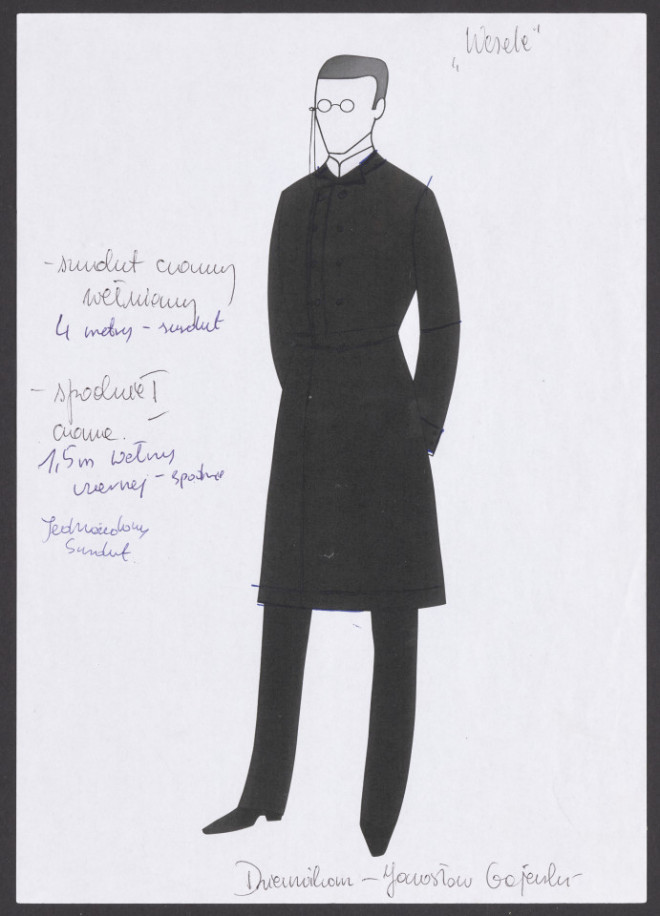 „Wesele"
- surdut czarny
wełniany
4 metry - surdut
- spodnie I
czarne.
1,5m wełny
czarnej - spodnie
Jednorzędowy
Surdut
Dziennikarz - Jarosław Gajewski